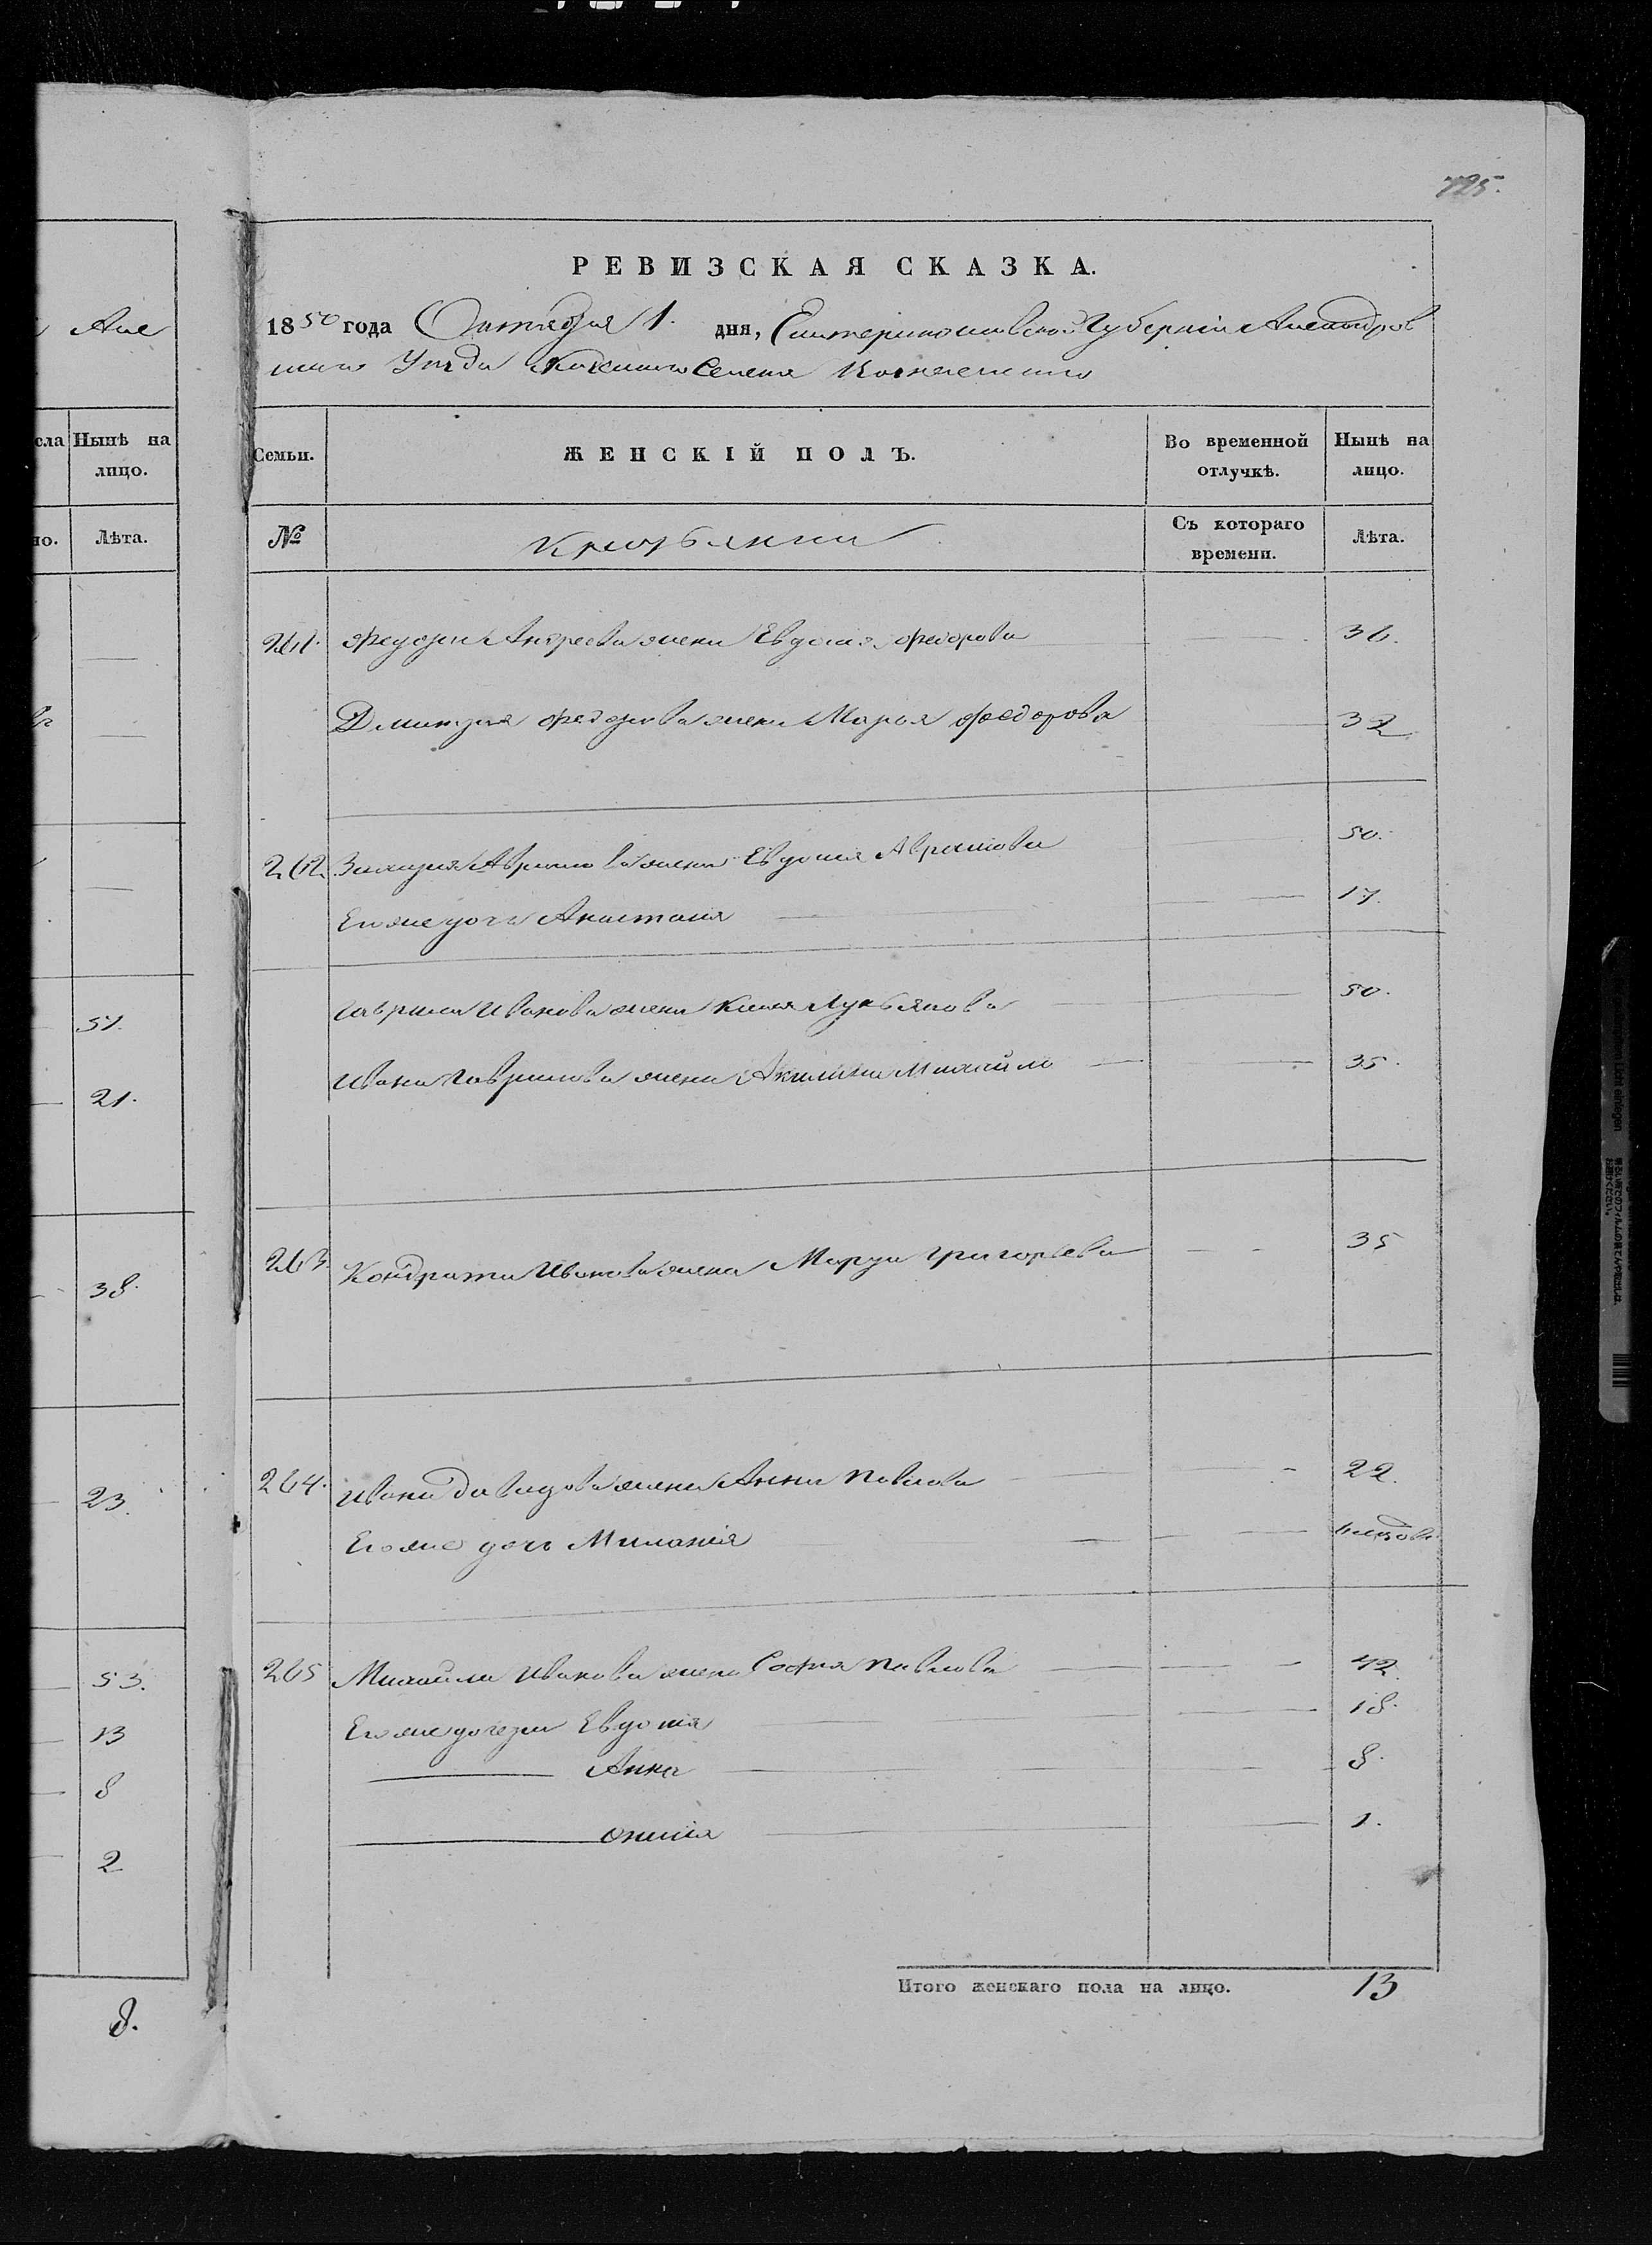 725.
РЕВИЗСКАЯ СКАЗКА.
1850 года Октября 1. дня, Екатеринославской Губернии Александров
скаго Уезда Казеннаго Селения
Але
сла Нынѣ на лицо.
Семьи.
ЖЕНСКІЙ ПОЛЪ.
Во временной отлучкѣ.
Нынѣ на лицо.
но. Лѣта.
№
Крестьянки
Съ котораго времени.
Лѣта.
261. Федора Андреева жена Евдокия Федорова 36.
Дмитрия Федорова жена Марья Федорова 32
262. Захария Абрамова жена Евдокия Абрамова 50.
Его же дочь Анастасия 17.
Гаврила Иванова жена Лукьянова 50.
Ивана Гаврилова жена Акилина Михайло 35.
263. Кондрата Иванова жена Марфа Григорьева 35
264. Ивана Давидова жена Анна Павлова 22.
Его же дочь Миланія
265 Михайла Иванова жена Софія Павлова 42.
Его же дочери Евдокія 18.
Анна 8.
1.
51.
21.
38.
23.
53.
13
8
2
8.
Итого женскаго пола на лицо. 13